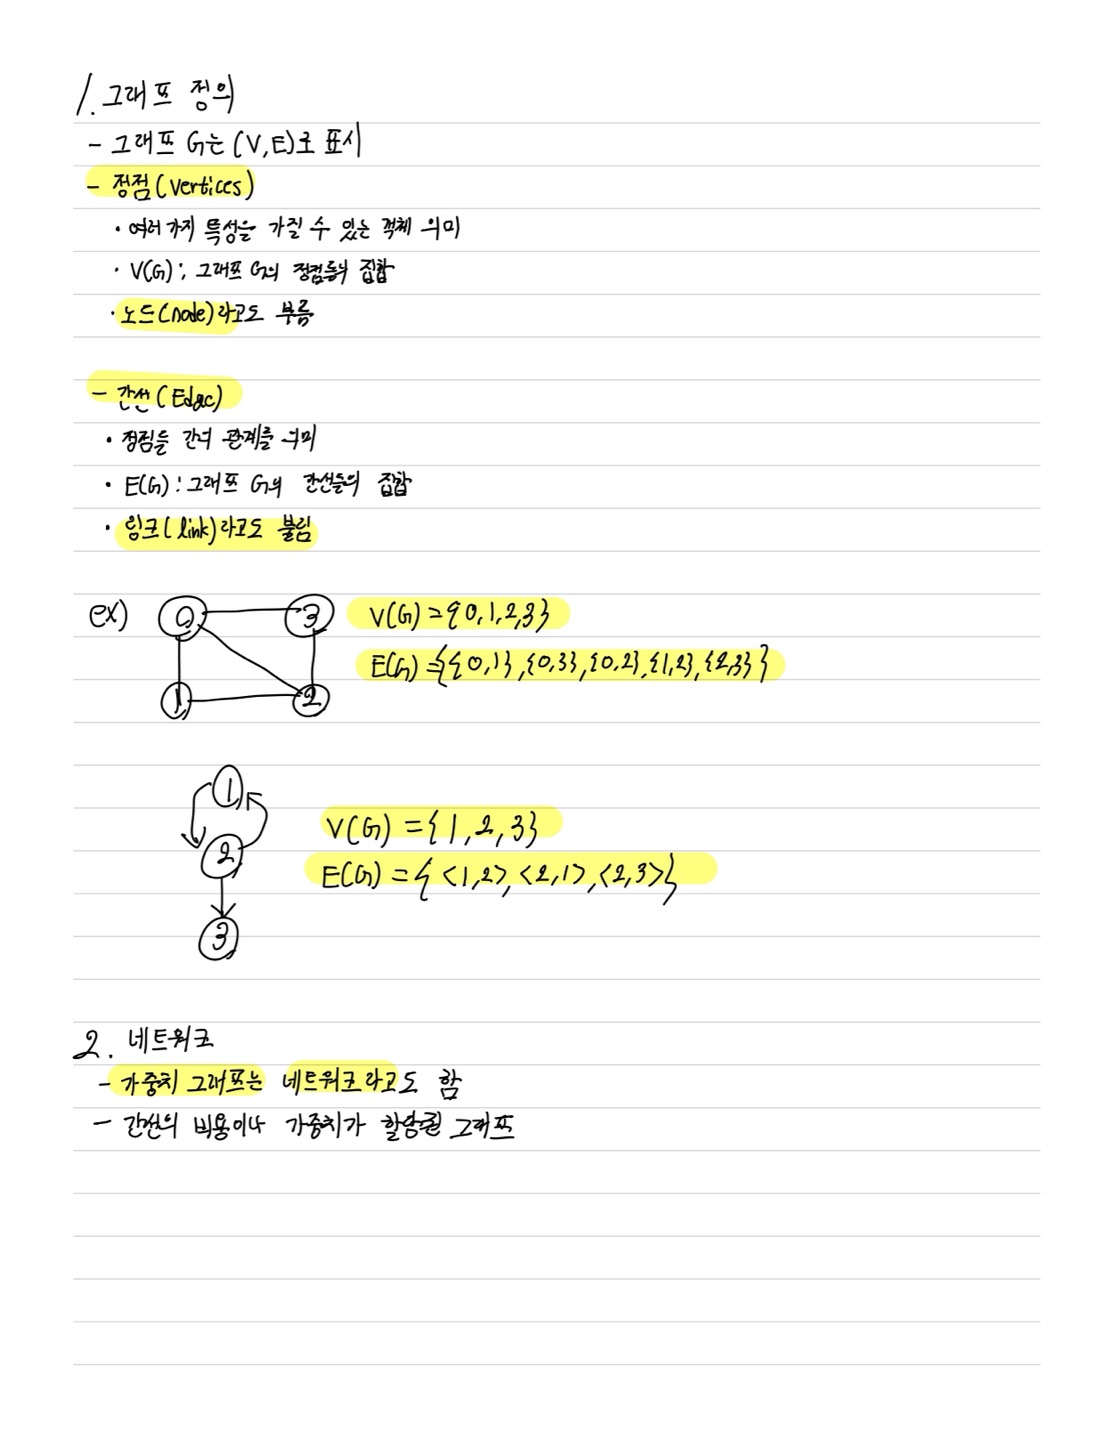 1. 그래프 정의
- 그래프 G는 (V,E)로 표시
- 정점(vertices)
· 여러가지 특성을 가질 수 있는 객체 의미
· V(G) : 그래프 G의 정점들의 집합
· 노드(node)라고도 부름
- 간선(Edge)
· 정점들 간의 관계를 의미
· E(G) : 그래프 G의 간선들의 집합
· 링크(link)라고도 불림
ex) 0 3 V(G) = {0,1,2,3}
E(G) = {{0,1},{0,3},{0,2},{1,2},{2,3}}
1 2
1
V(G) = {1,2,3}
2
E(G) = {<1,2>,<2,1>,<2,3>}
3
2. 네트워크
- 가중치 그래프는 네트워크라고도 함
- 간선의 비용이나 가중치가 할당된 그래프